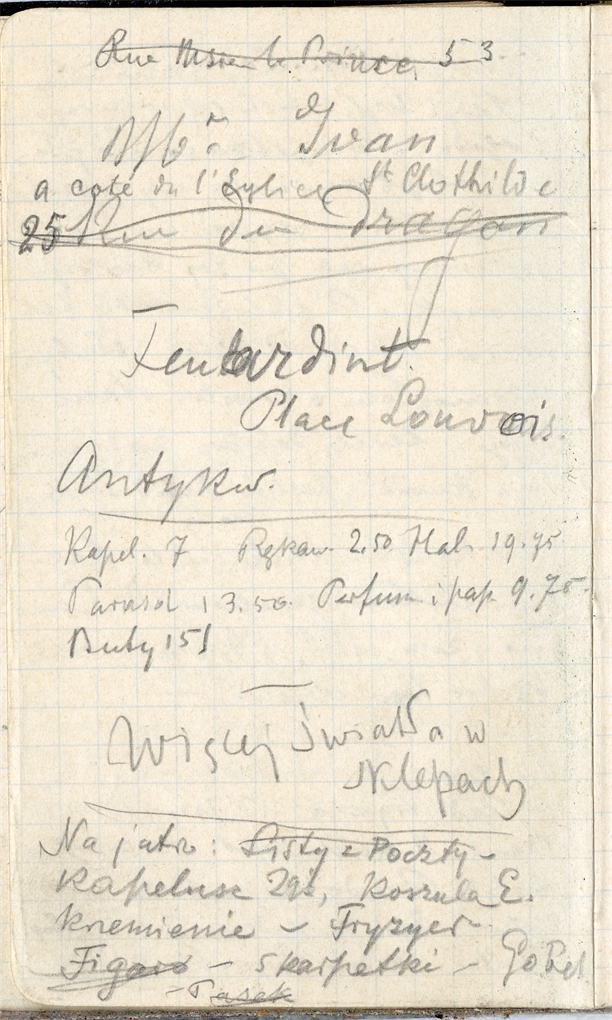 Rue Monsr le Prince 53
Ivan
a coté du l'Eglice St Clothilde
25 Rue du Dragon
Feuardint
Place Louvois.
Antykw.
Kapel. 7 Rękaw. 2.50 Hal. 19.75
Parasol 13.50. Perfum i pap. 9.75
Buty 15
Więcej światła w
Sklepach
Na jutro: Listy z Poczty -
Kapelusz, Koszula E.
Krzemienie - Fryzyer
Figaro - Skarpetki -
- Pasek